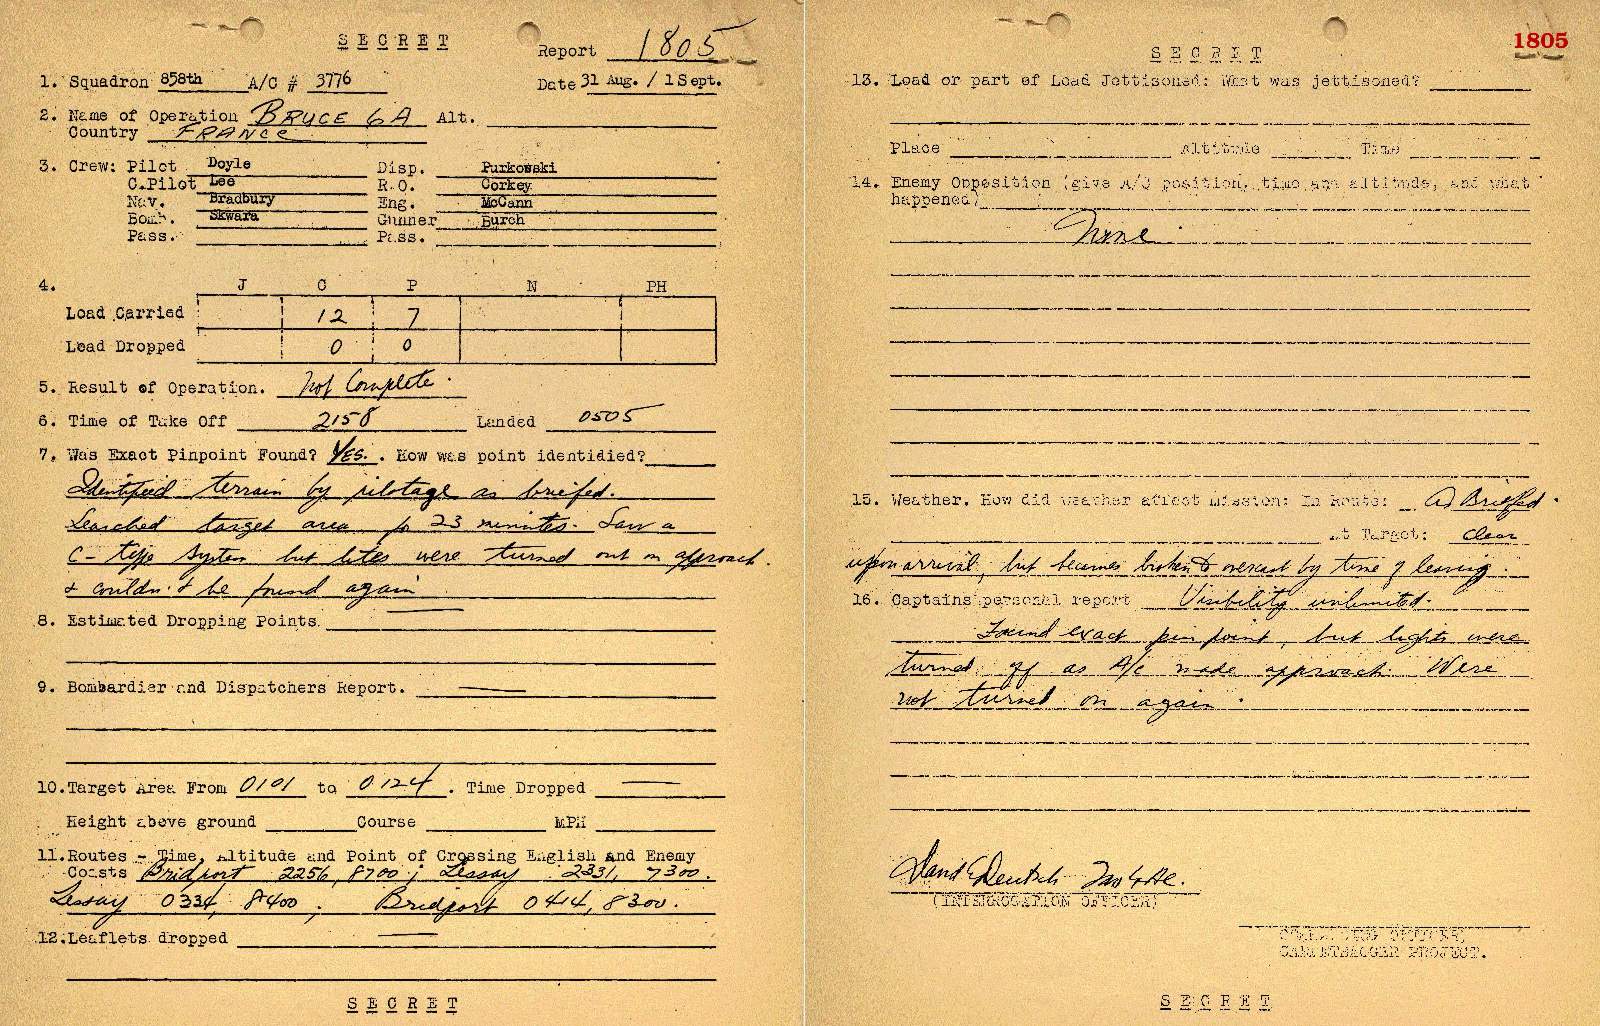 SECRET
Report 1805
1. Squadron 858th A/C # 3776 Date 31 Aug. / 1 Sept.
2. Name of Operation BRUCE 6A Alt.
Country FRANCE
3. Crew: Pilot Doyle Disp. Purkowski
C.Pilot Lee R.O. Corkey
Nav. Bradbury Eng. McCann
Bomb. Skwara Gunner Burch
Pass. Pass.
4. J C P N PH
Load Carried 12 7
Load Dropped 0 0
5. Result of Operation. Not Complete.
6. Time of Take Off 2158 Landed 0505
7. Was Exact Pinpoint Found? YES. . How was point identidied?
Identified terrain by pilotage as briefed.
Searched target area for 23 minutes. Saw a
C-type system but lites were turned out on approach.
& couldn't be found again
8. Estimated Dropping Points.
9. Bombardier and Dispatchers Report.
10. Target Area From 0101 to 0124 . Time Dropped
Height above ground Course MPH
11. Routes - Time, Altitude and Point of Crossing English and Enemy
Coasts Bridport 2256, 8700 ; Lessay 2331, 7300.
Lessay 0334, 8400 ; Bridport 0414, 8300.
12. Leaflets dropped
SECRET
1805
SECRET
13. Load or part of Load Jettisoned: What was jettisoned?
Place Altitude Time
14. Enemy Opposition (give A/C position, time and altitude, and what
happened)
None
15. Weather. How did weather affect Mission: In Route: As Briefed.
At Target: clear
upon arrival, but becomes broken to overcast by time of leaving.
16. Captains personal report Visibility unlimited.
Found exact pin point, but lights were
turned off as A/c made approach. Were
not turned on again.
(INTERROGATION OFFICER)
CARPETBAGGER PROJECT.
SECRET